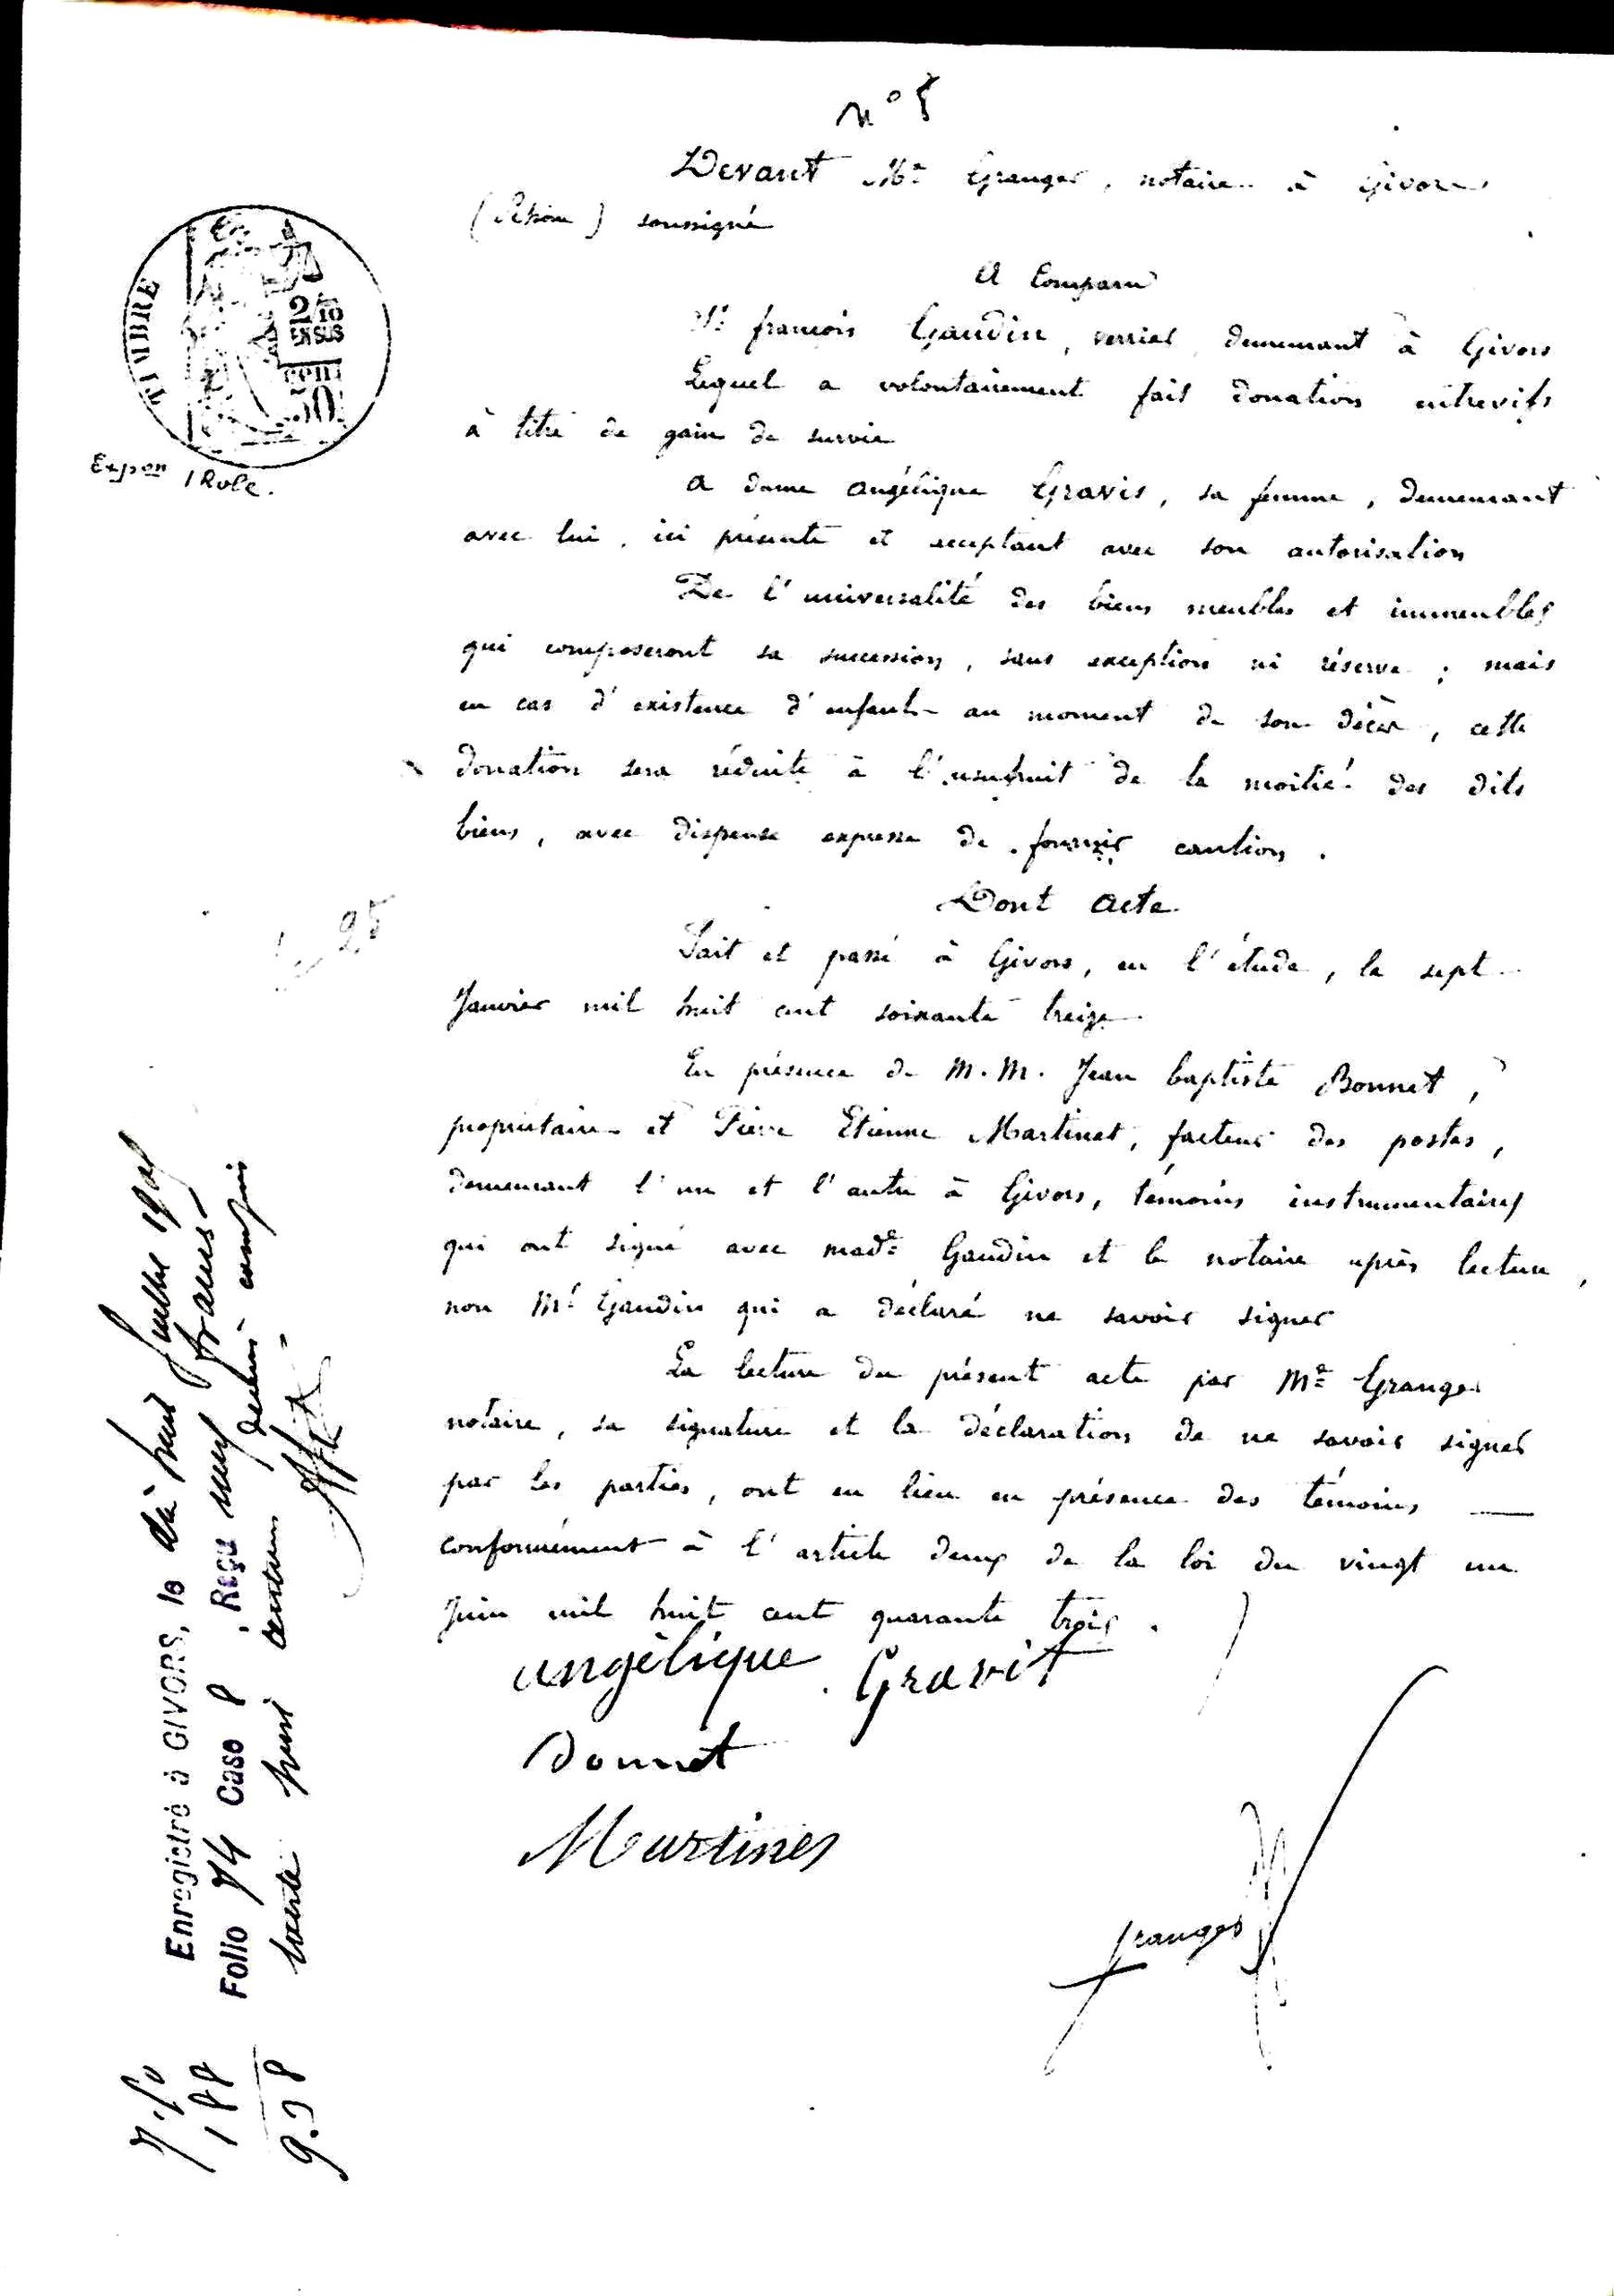 n° 8
Devant Me Granger, notaire à Givors
(Rhône) soussigné
A Comparu
Sr françois Gaudin, verrier, demeurant à Givors
Lequel a volontairement fait donation entrevifs
à titre de gain de survie
A dame angélique Gravis, sa femme, demeurant
avec lui, ici présente et acceptant avec son autorisation
De l'universalité des biens meubles et immeubles
qui composeront sa succession, sans exception ni réserve ; mais
en cas d'existence d'enfants au moment de son décès, cette
donation sera réduite à l'usufruit de la moitié des dits
biens, avec dispense expresse de fournir caution.
Dont acte
Fait et passé à Givors, en l'étude, le sept
Janvier mil huit cent soixante treize
En présence de M.M. Jean baptiste Bonnet,
propriétaire et Pierre Etienne Martinet, facteur des postes,
demeurant l'un et l'autre à Givors, témoins instrumentaires
qui ont signé avec made Gaudin et le notaire après lecture,
non Mr Gaudin qui a déclaré ne savoir signer
La lecture du présent acte par Me Granger
notaire, sa signature et la déclaration de ne savoir signer
par les parties, ont eu lieu en présence des témoins
conformément à l'article deux de la loi du vingt un
Juin mil huit cent quarante trois.
angèlique Gravit
Bonnet
Martinet
Granger
TIMBRE
2/10
EN SUS
50
Expon 1 Role.
25
Enregistré à GIVORS, le dix huit Juillet
Folio 74 Case 8. Reçu neuf francs
trente huit centimes decimes compris
7.50
188
9.38